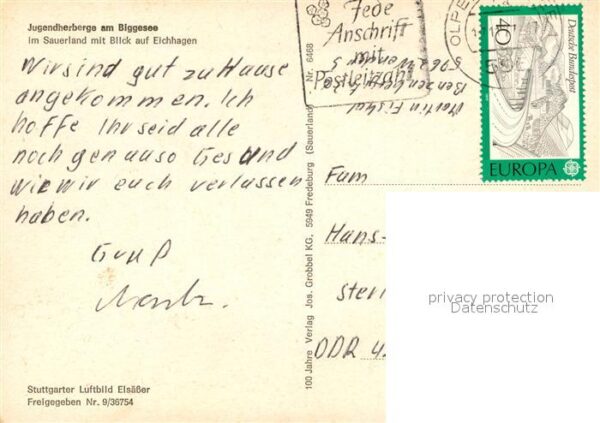 Jugendherberge am Biggesee
im Sauerland mit Blick auf Eichhagen
Wir sind gut zu Hause
angekommen. Ich
hoffe Ihr seid alle
noch genauso Gesund
wie wir euch verlassen
haben.
Gruß
Stuttgarter Luftbild Elsäßer
Freigegeben Nr. 9/36754
100 Jahre Verlag Jos. Grobbel KG, 5949 Fredeburg (Sauerland) Nr. 6468
Jede
Anschrift
mit
Postleitzahl
OLPE
Martin
40
Deutsche Bundespost
EUROPA
Fam
Hans-
DDR 4
privacy protection
Datenschutz